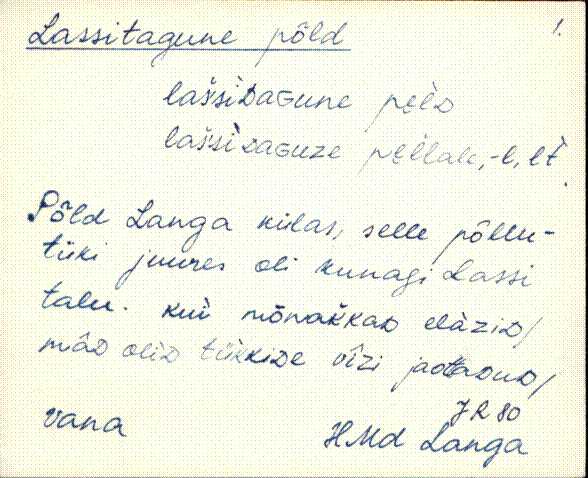 Lassitagune põld 1.
laššìDaGune pèlD
laššìDaGuze pèllale, -l, lt̀
Põld Langa külas, selle põllu-
tüki juures oli kunagi Lassi
talu. kui mõnaǩkaD elàziD/
mâD oliD tükkiDe vîzi jaotaDuD/
JR 80
vana HMd Langa